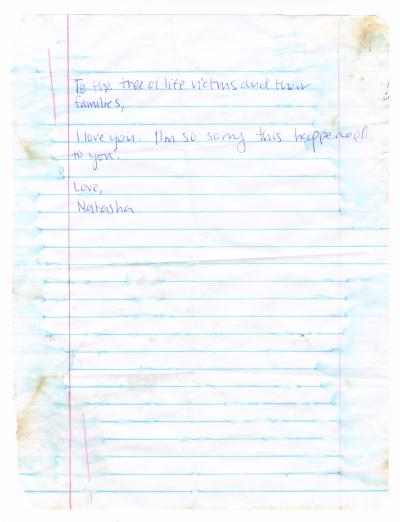 To the tree of life victims and their
families,
I love you. I'm so sorry this happened
to you.
Love,
Natasha